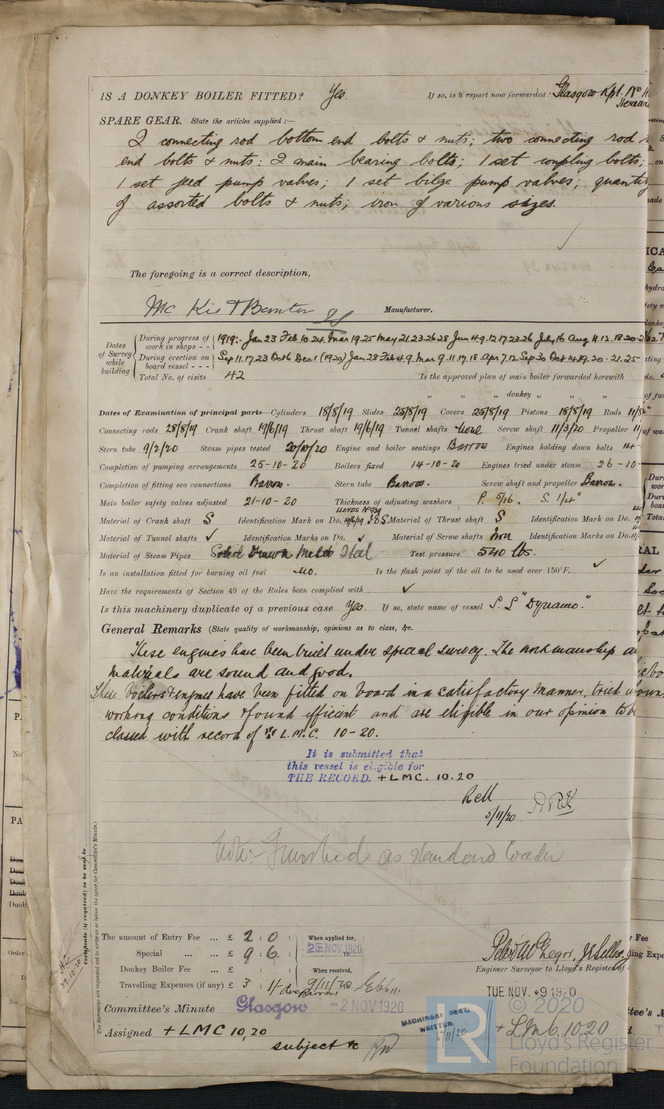 IS A DONKEY BOILER FITTED? Yes. If so, is a report now forwarded? Glasgow Rpt. No
SPARE GEAR. State the articles supplied:—
2 connecting rod bottom end bolts & nuts; two connecting rod
end bolts & nuts; 2 main bearing bolts; 1 set coupling bolts;
1 set feed pump valves; 1 set bilge pump valves; quantity
of assorted bolts & nuts; iron of various sizes.
The foregoing is a correct description,
Mc Kie & Baxter Ld Manufacturer.
Dates of Survey while building
During progress of work in shops - - 1919:- Jan 23 Feb 10.24 Mar 19.25 May 21.23.26.28 Jun 4.9.12.17.23.26 July 16 Aug 11.12.18.20
During erection on board vessel - - - Sep 11.17.23 Oct 6 Dec 1 (1920) Jan 28 Feb 4.9 Mar 9.11.17.18 Apr 7.12 Sep 30 Oct 14.19.20.21.25
Total No. of visits 42 Is the approved plan of main boiler forwarded herewith
" " " donkey "
Dates of Examination of principal parts—Cylinders 18/8/19 Slides 25/8/19 Covers 25/8/19 Pistons 18/8/19 Rods
Connecting rods 28/8/19 Crank shaft 19/6/19 Thrust shaft 19/6/19 Tunnel shafts None Screw shaft 11/3/20 Propeller
Stern tube 9/2/20 Steam pipes tested 20/10/20 Engine and boiler seatings Barrow Engines holding down bolts
Completion of pumping arrangements 25-10-20 Boilers fixed 14-10-20 Engines tried under steam 26-10
Completion of fitting sea connections Barrow. Stern tube Barrow. Screw shaft and propeller Barrow.
Main boiler safety valves adjusted 21-10-20 Thickness of adjusting washers P. 5/16. S. 1/4"
Material of Crank shaft S Identification Mark on Do. Material of Thrust shaft S Identification Mark on Do.
Material of Tunnel shafts ✓ Identification Marks on Do. ✓ Material of Screw shafts Iron Identification Marks on Do.
Material of Steam Pipes Solid Drawn Mild Steel Test pressure 540 lbs.
Is an installation fitted for burning oil fuel No. Is the flash point of the oil to be used over 150°F. ✓
Have the requirements of Section 49 of the Rules been complied with ✓
Is this machinery duplicate of a previous case Yes. If so, state name of vessel S.S "Dynamo."
General Remarks (State quality of workmanship, opinions as to class, &c.
These engines have been built under special survey. The workmanship
materials are sound and good.
These Boilers & engines have been fitted on board in a satisfactory manner, tried
working conditions & found efficient and are eligible in our opinion to be
classed with record of + L.M.C. 10-20.
It is submitted that
this vessel is eligible for
THE RECORD. + LMC. 10.20
5/11/20
Note:- Furnished as Standard
The amount of Entry Fee ... £ 2 : 0 : When applied for,
Special ... ... £ 9 : 6 . 2 NOV 1920
Donkey Boiler Fee ... £ : : When received,
Travelling Expenses (if any) £ 3 : 9/11/20
Engineer Surveyor to Lloyd's Register
Committee's Minute Glasgow -2 NOV 1920
TUE NOV. -9 1920
Assigned + LMC 10,20
subject to
MACHINERY CERT. WRITTEN 5/11/20
+ LMC 10.20
© 2020
Lloyd's Register
Foundation
LR